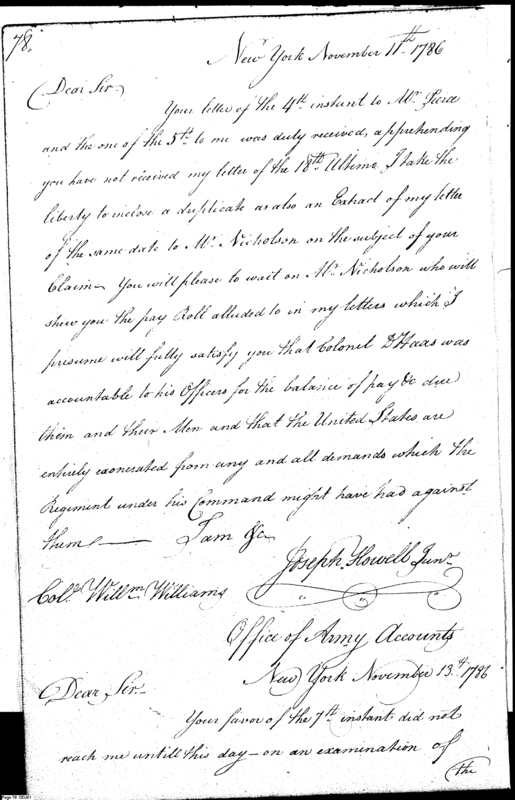 78.
New York November 11th 1786
Dear Sir
Your letter of the 4th instant to Mr. Pierce
and the one of the 5th to me was duly received, apprehending
you have not received my letter of the 18th Ultimo I take the
liberty to inclose a duplicate as also an Extract of my letter
of the same date to Mr. Nicholson on the subject of your
Claim - You will please to wait on Mr. Nicholson who will
shew you the pay Roll alluded to in my letters which I
presume will fully satisfy you that Colonel D'Haas was
accountable to his Officers for the balance of pay &c due
them and their Men and that the United States are
entirely exonerated from any and all demands which the
Regiment under his Command might have had against
them — I am &c
Joseph Howell Junr.
Coll. Willm. Williams
Office of Army Accounts
New York November 13th. 1786
Dear Sir
Your favor of the 7th instant did not
reach me untill this day - on an examination of
the